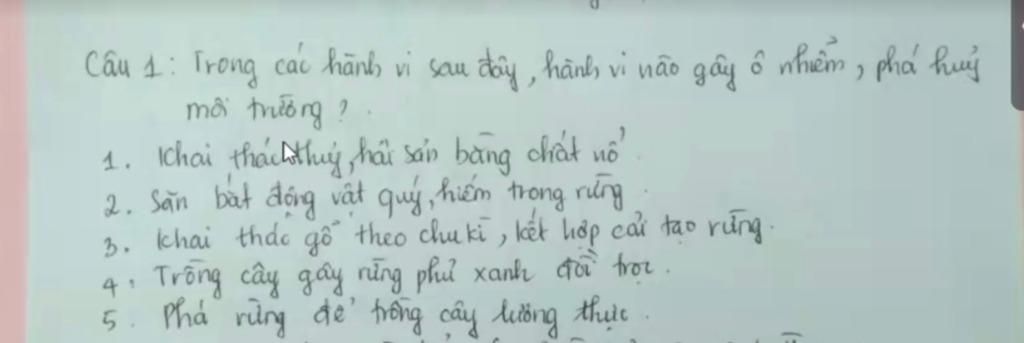 Câu 1: Trong các hành vi sau đây, hành vi nào gây ô nhiễm, phá huỷ
môi trường?
1. Khai thác thuỷ, hải sản bằng chất nổ.
2. Săn bắt động vật quý, hiếm trong rừng.
3. Khai thác gỗ theo chu kì, kết hợp cải tạo rừng.
4. Trồng cây gây rừng phủ xanh đồi trọc.
5. Phá rừng để trồng cây lương thực.